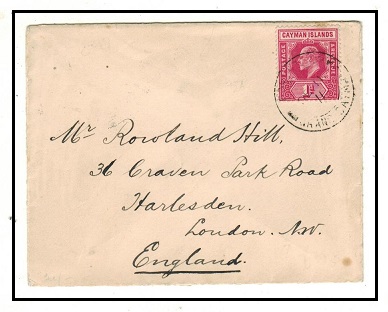 CAYMAN ISLANDS
POSTAGE
1D
Mr Rowland Hill,
36 Craven Park Road
Harlesden.
London. N.W.
England.